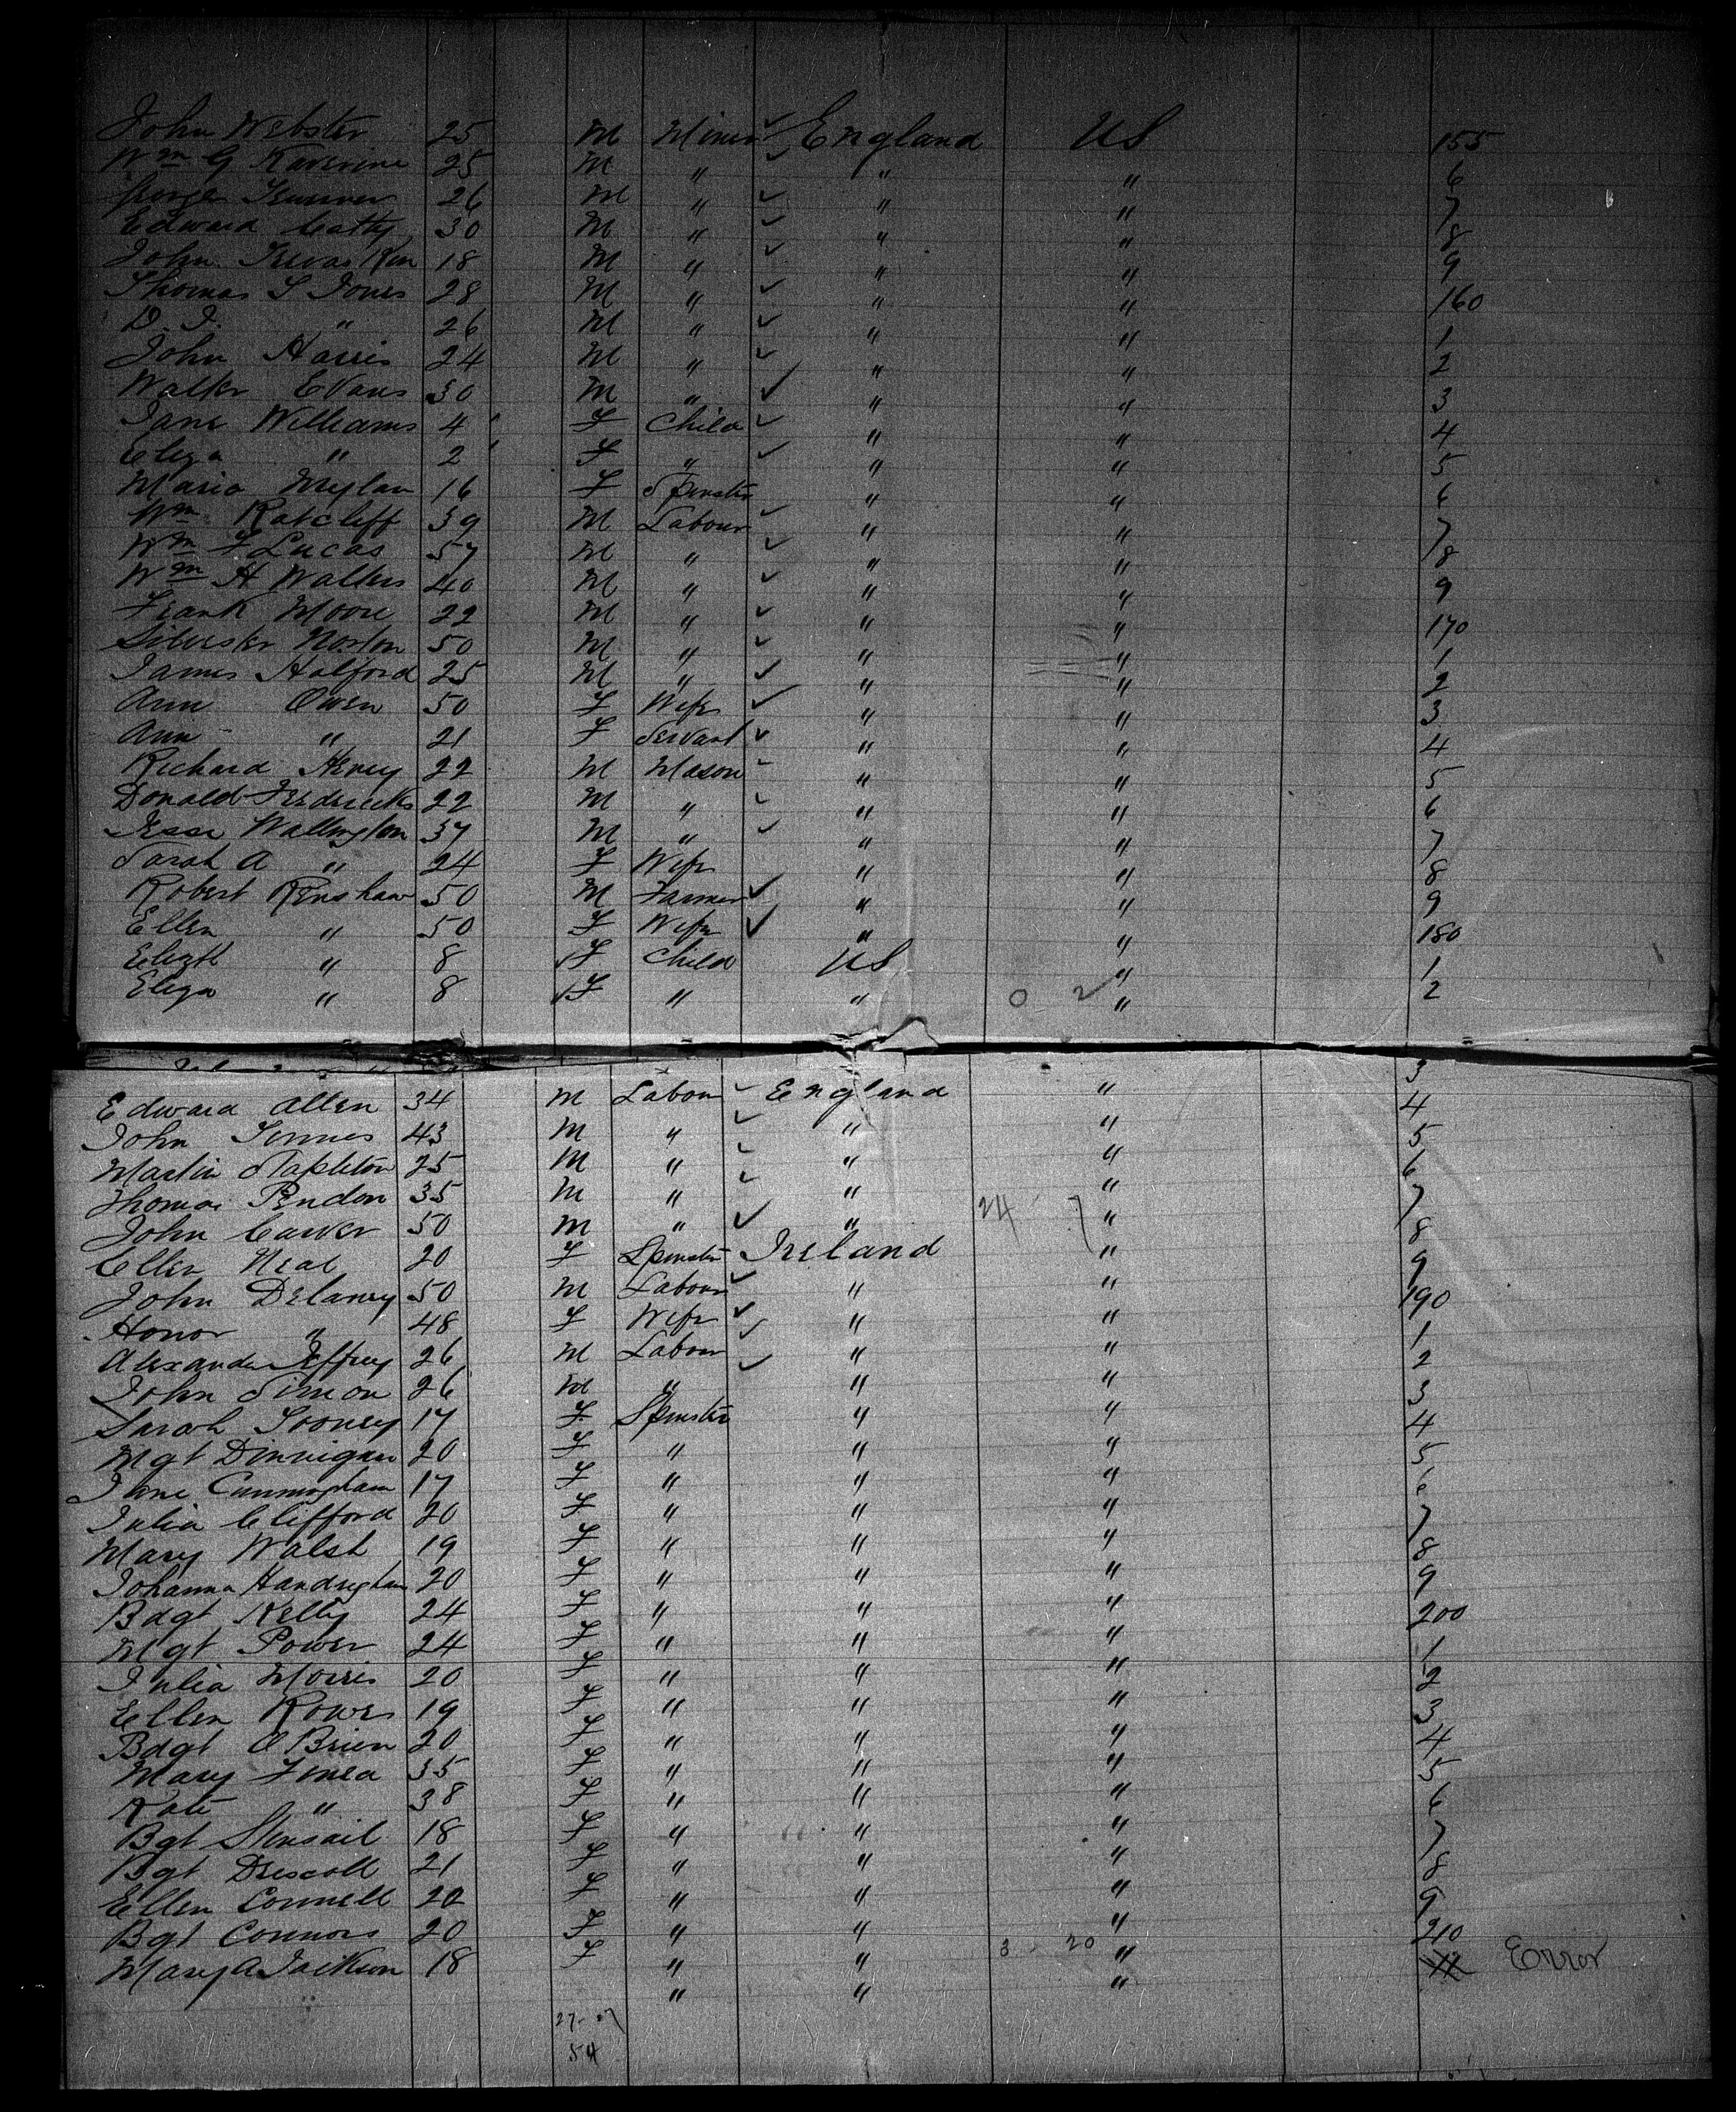 John Webster 25 M Miner ✓ England US 155
Wm G Kaverine 25 M " ✓ " " 6
George 26 M " ✓ " " 7
Edward Catty 30 M " ✓ " " 8
John 18 M " ✓ " " 9
Thomas S Jones 28 M " ✓ " " 160
D. J. " 26 M " ✓ " " 1
John Harris 24 M " ✓ " " 2
Walter Evans 30 M " ✓ " " 3
Jane Williams 4 F Child ✓ " " 4
Eliza " 2 F " ✓ " " 5
Maria 16 F Spinster " " 6
Wm Ratcliff 39 M Labour ✓ " " 7
Wm F Lucas 57 M " ✓ " " 8
Wm H Walters 40 M " ✓ " " 9
Frank Moore 22 M " ✓ " " 170
Silvester Norton 50 M " ✓ " " 1
James Halford 25 M " ✓ " " 2
Ann Owen 50 F Wife ✓ " " 3
Ann " 21 F Servant ✓ " " 4
Richard Henry 22 M Mason " " 5
Donald Fredericks 22 M " ✓ " " 6
Jesse Wallington 37 M " ✓ " " 7
Sarah A " 24 F Wife " " 8
Robert Renshaw 50 M Farmer ✓ " " 9
Ellen " 50 F Wife ✓ " " 180
Elizth " 8 ✓ F Child US " 1
Eliza " 8 ✓ F " " 0 2 " 2
3
Edward Allen 34 M Labour ✓ England " 4
John 43 M " ✓ " " 5
Martin Stapleton 25 M " ✓ " " 6
Thomas Pendon 35 M " ✓ " " 7
John Carver 50 M " ✓ " 24 7 " 8
Ellen Neal 20 F Spinster Ireland " 9
John Delaney 50 M Labour ✓ " " 190
Honor " 48 F Wife ✓ " " 1
Alexander Jeffrey 26 M Labour ✓ " " 2
John Simon 26 M " ✓ " " 3
Sarah Tooney 17 F Spinster " " 4
Mgt Dinnigan 20 F " " " 5
Jane Cunningham 17 F " " " 6
Julia Clifford 20 F " " " 7
Mary Walsh 19 F " " " 8
Johanna Handrighan 20 F " " " 9
Bdgt Kelly 24 F " " " 200
Mgt Power 24 F " " " 1
Julia Morris 20 F " " " 2
Ellen Rowe 19 F " " " 3
Bdgt O Brien 20 F " " " 4
Mary 35 F " " " 5
Kate " 38 F " " " 6
Bgt 18 F " " " 7
Bgt Driscoll 21 F " " " 8
Ellen Connell 20 F " " " 9
Bgt Connors 20 F " " 3 20 " 210
Mary A Jackson 18 F " " " Error
" " "
27-27
54